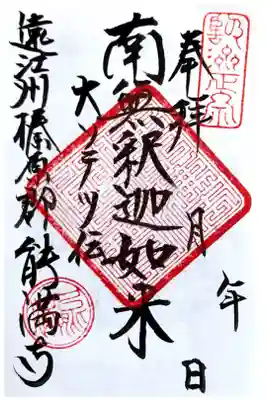 奉拝
月
年
日
南無釈迦如来
大ソテツ伝
遠江州榛原郡能満寺